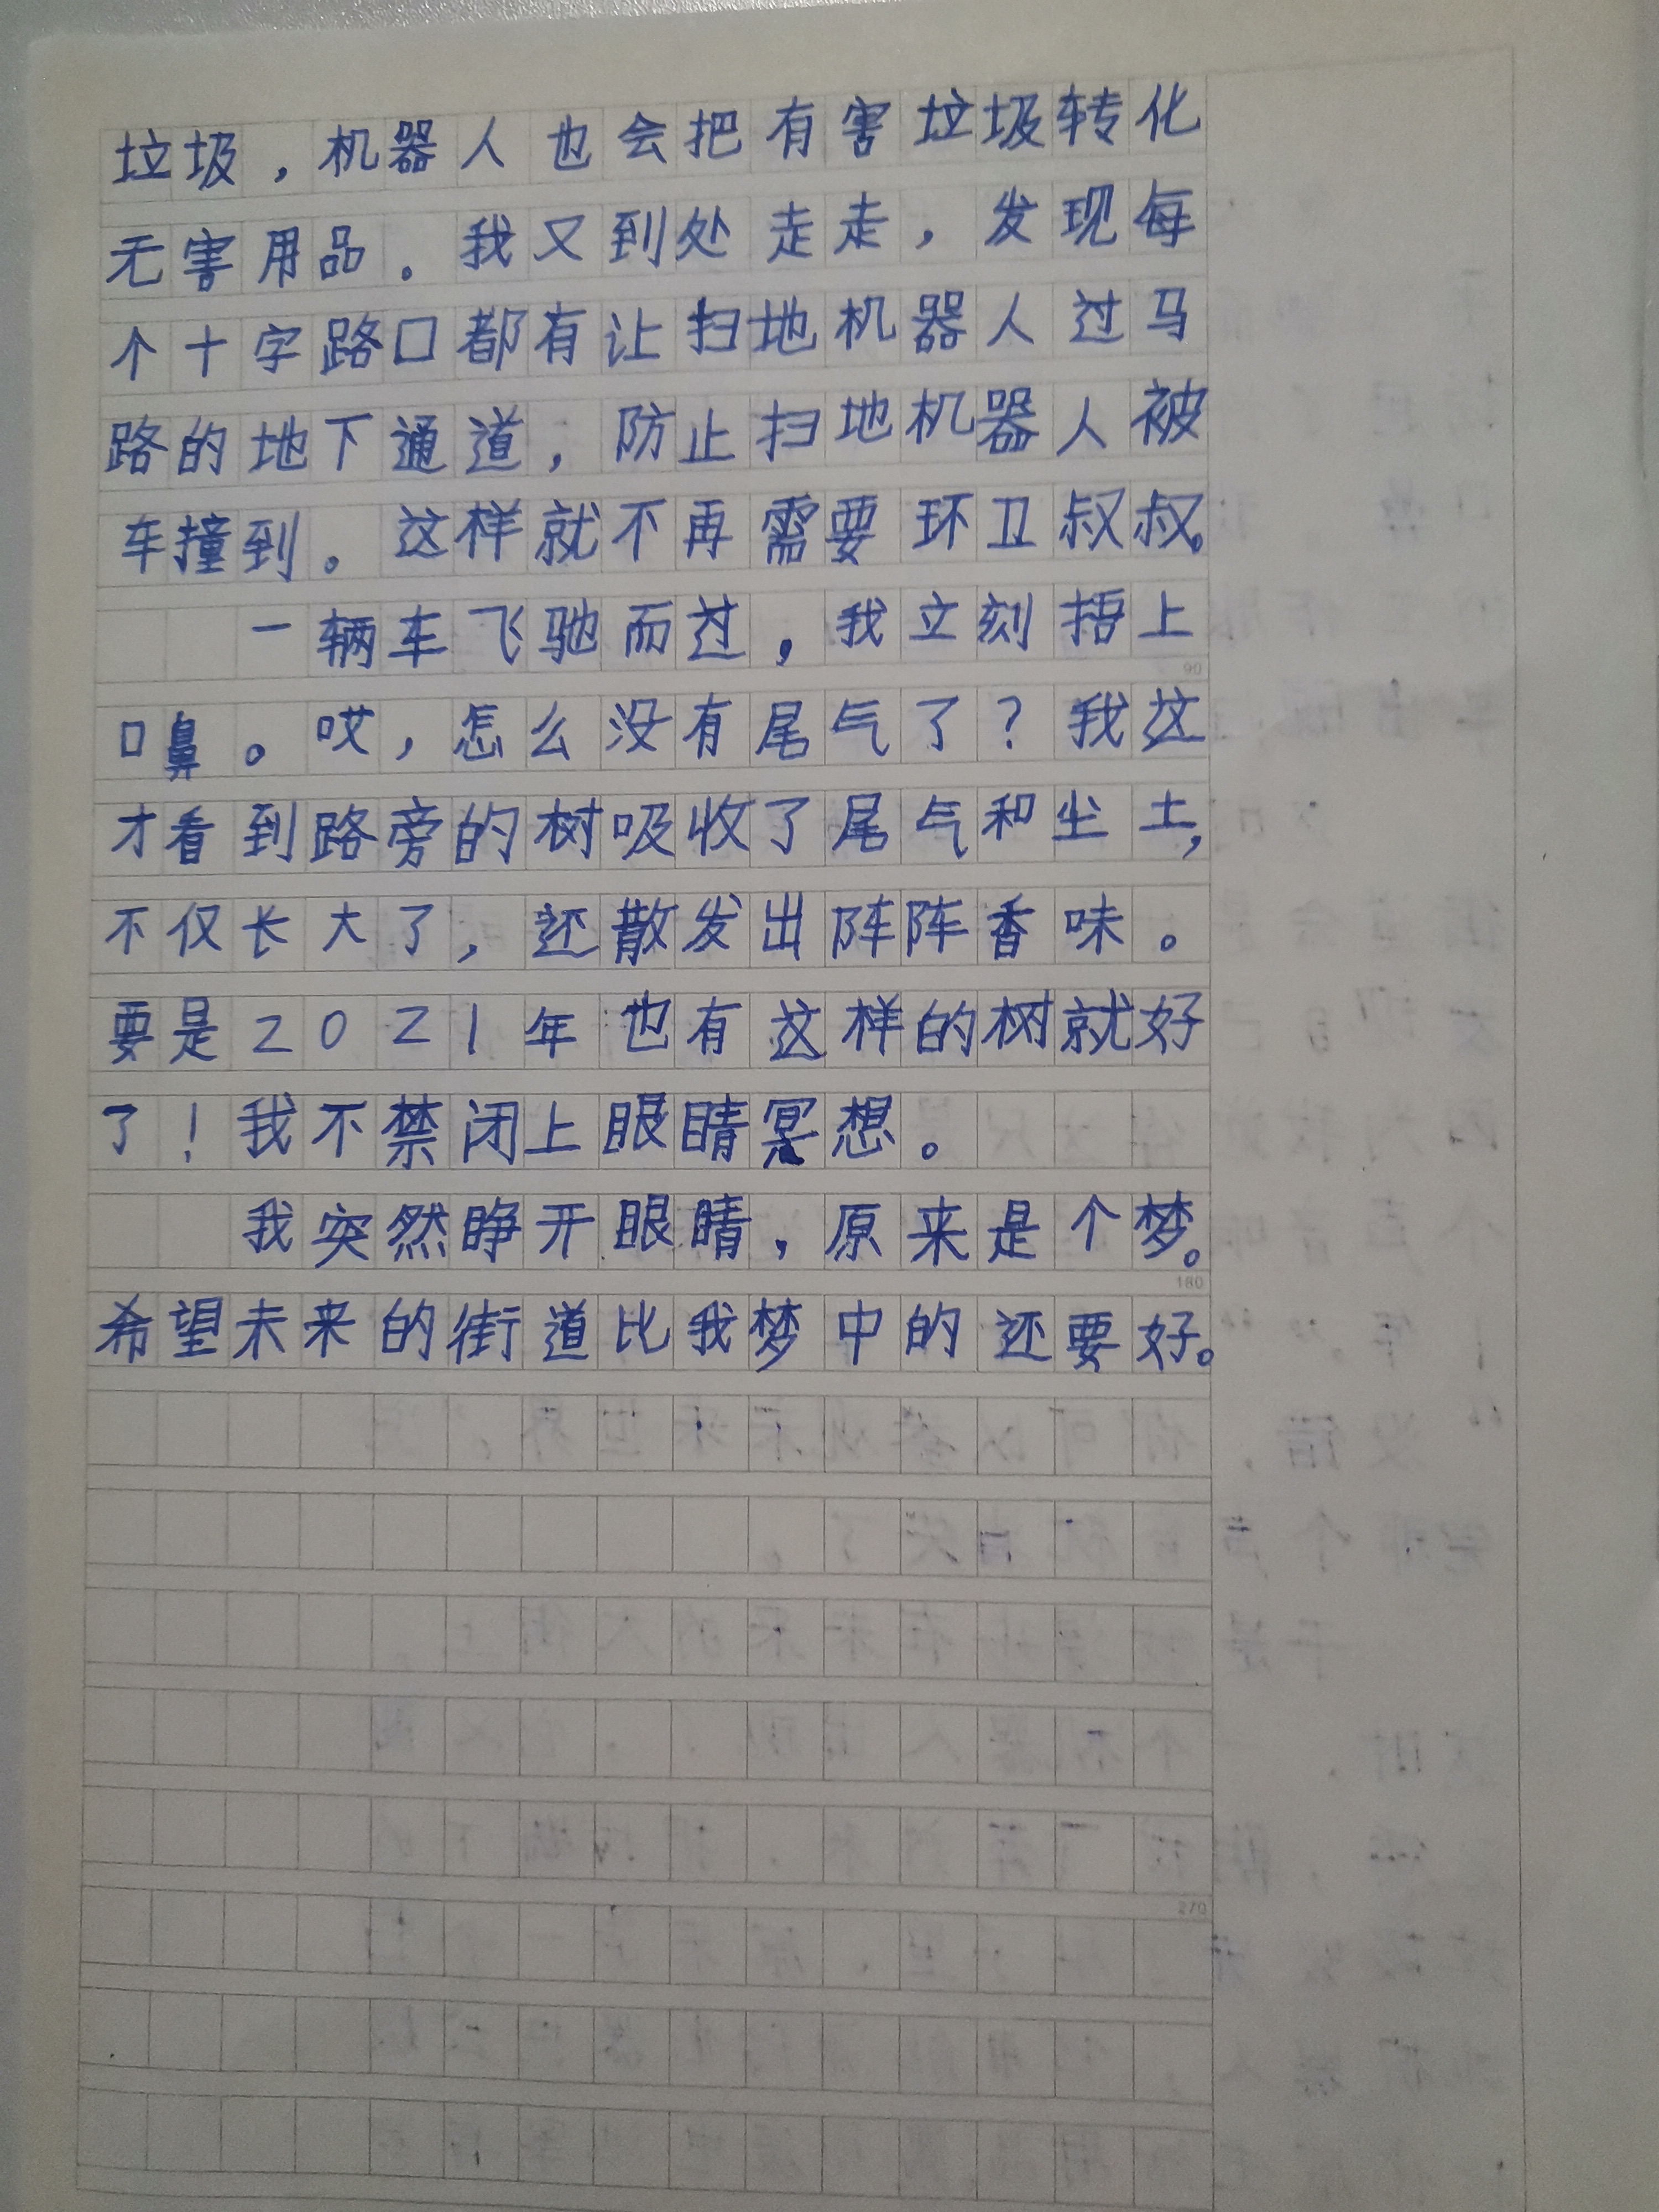 垃圾，机器人也会把有害垃圾转化
无害用品。我又到处走走，发现每
个十字路口都有让扫地机器人过马
路的地下通道，防止扫地机器人被
车撞到。这样就不再需要环卫叔叔。
一辆车飞驰而过，我立刻捂上
90
口鼻。哎，怎么没有尾气了？我这
才看到路旁的树吸收了尾气和尘土，
不仅长大了，还散发出阵阵香味。
要是2021年也有这样的树就好
了！我不禁闭上眼睛冥想。
我突然睁开眼睛，原来是个梦。
180
希望未来的街道比我梦中的还要好。
270